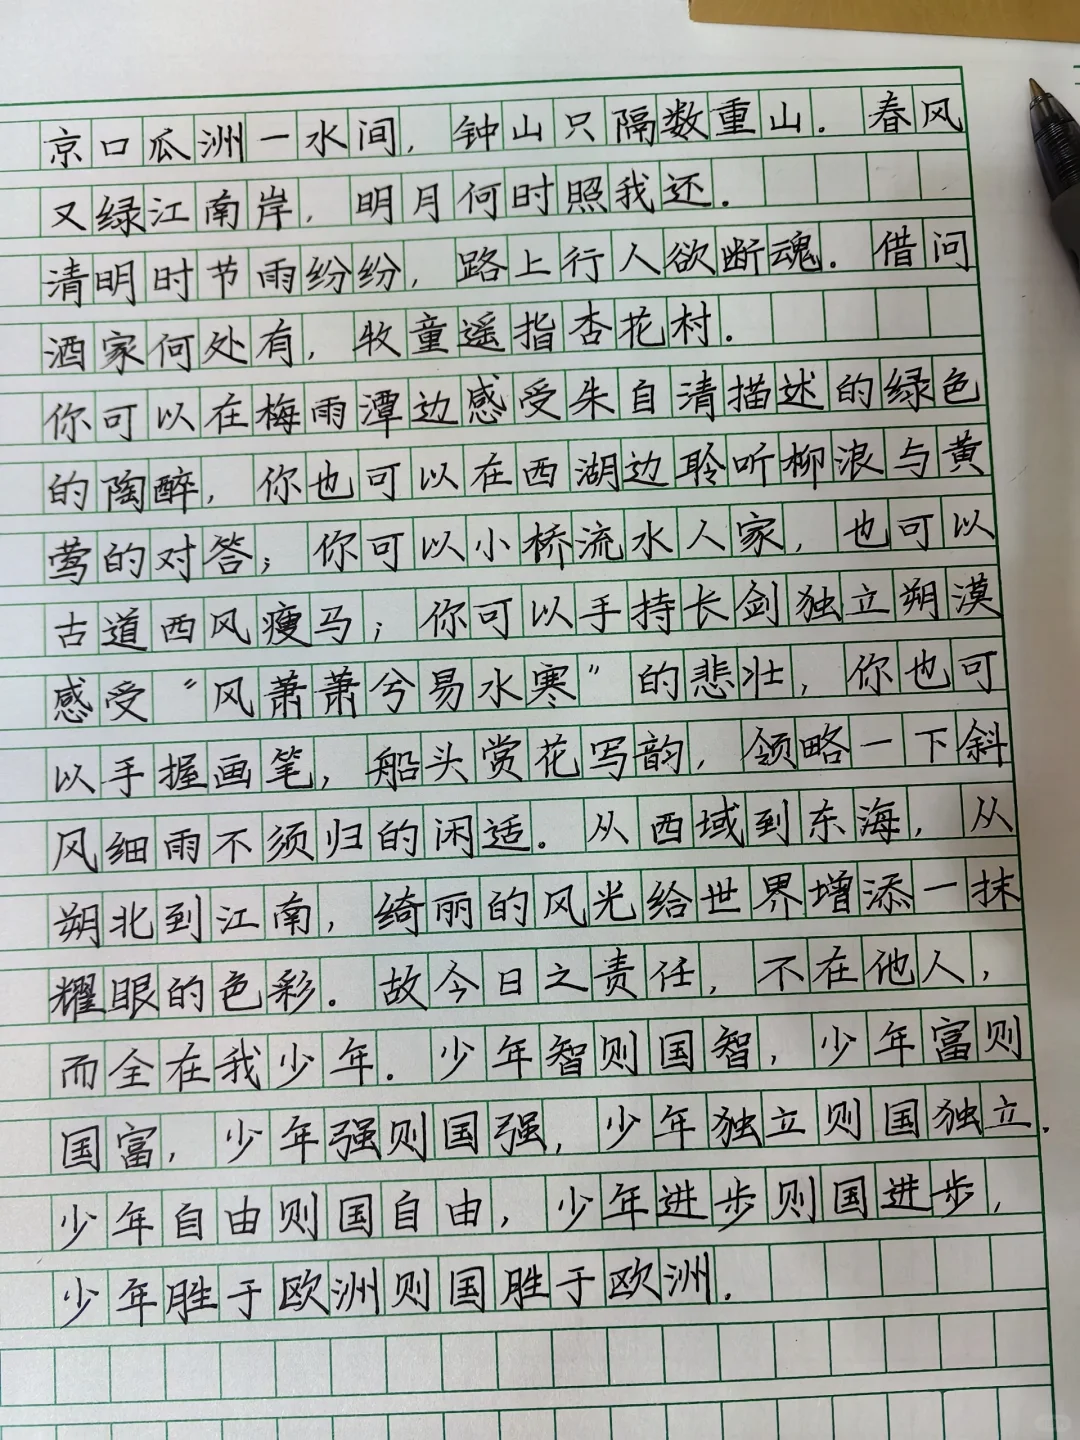 京口瓜洲一水间，钟山只隔数重山．春风
又绿江南岸，明月何时照我还．
清明时节雨纷纷，路上行人欲断魂．借问
酒家何处有，牧童遥指杏花村．
你可以在梅雨潭边感受朱自清描述的绿色
的陶醉，你也可以在西湖边聆听柳浪与黄
莺的对答；你可以小桥流水人家，也可以
古道西风瘦马；你可以手持长剑独立朔漠
感受“风萧萧兮易水寒”的悲壮，你也可
以手握画笔，船头赏花写韵，领略一下斜
风细雨不须归的闲适。从西域到东海，从
朔北到江南，绮丽的风光给世界增添一抹
耀眼的色彩．故今日之责任，不在他人，
而全在我少年．少年智则国智，少年富则
国富，少年强则国强，少年独立则国独立．
少年自由则国自由，少年进步则国进步，
少年胜于欧洲则国胜于欧洲．